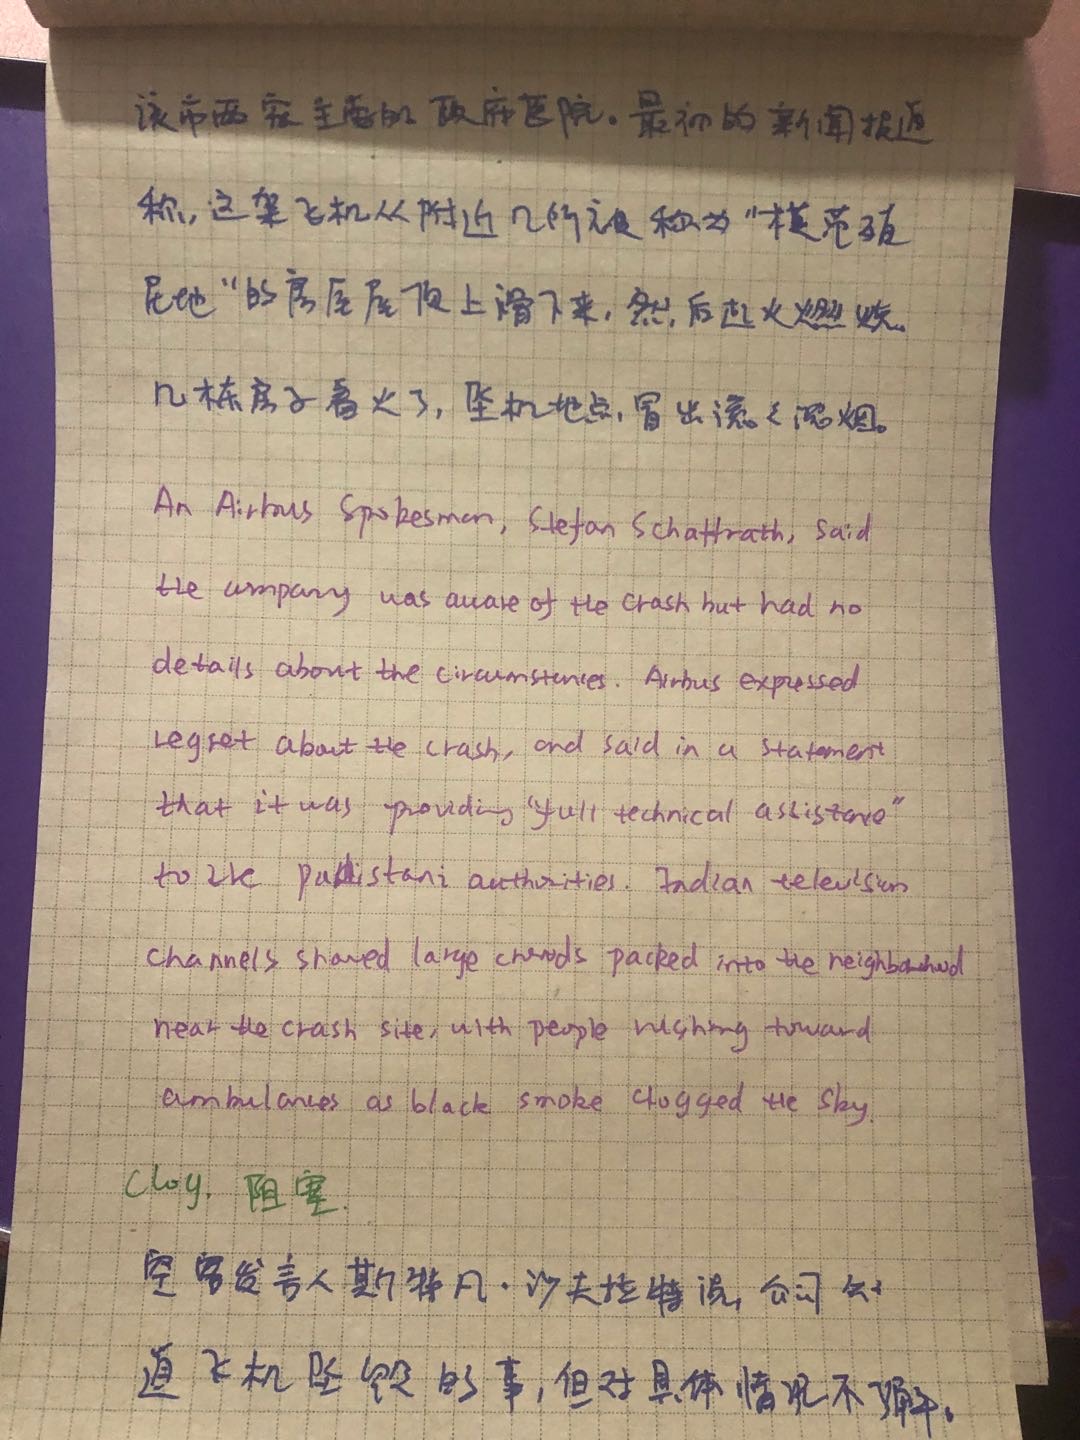 该市两家主要的政府医院。最初的新闻报道
称,这架飞机从附近几所被称为“模范殖
民地”的房屋屋顶上滑下来,然后起火燃烧。
几栋房子着火了,坠机地点,冒出滚滚浓烟。
An Airbus Spokesman, Stefan Schaffrath, said
the company was aware of the crash but had no
details about the circumstances. Airbus expressed
regret about the crash, and said in a statement
that it was providing "full technical assistance"
to the pakistani authorities. Indian television
channels showed large crowds packed into the neighborhood
near the crash site, with people rushing toward
ambulances as black smoke clogged the sky.
Clog. 阻塞.
空客发言人斯特凡·沙夫拉特说,公司知
道飞机坠毁的事,但对具体情况不了解。